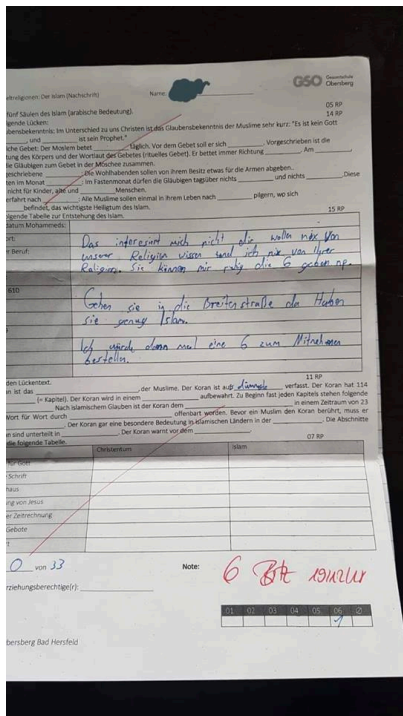 GSO Gesamtschule
Obersberg
eltreligionen: Der Islam (Nachschrift) Name:
05 RP
fünf Säulen des Islam (arabische Bedeutung).
14 RP
lgende Lücken:
ubensbekenntnis: Im Unterschied zu uns Christen ist das Glaubensbekenntnis der Muslime sehr kurz: "Es ist kein Gott
, und ist sein Prophet."
iche Gebet: Der Moslem betet täglich. Vor dem Gebet soll er sich . Vorgeschrieben ist die
tung des Körpers und der Wortlaut des Gebetes (rituelles Gebet). Er betet immer Richtung . Am ,
ie Gläubigen zum Gebet in der Moschee zusammen.
geschriebene . Die Wohlhabenden sollen von ihrem Besitz etwas für die Armen abgeben.
ten im Monat : Im Fastenmonat dürfen die Gläubigen tagsüber nichts und nichts . Diese
nicht für Kinder, alte und Menschen.
erfahrt nach : Alle Muslime sollen einmal in ihrem Leben nach pilgern, wo sich
befindet, das wichtigste Heiligtum des Islam.
15 RP
lgende Tabelle zur Entstehung des Islam.
datum Mohammeds:
ort:
e Beruf:
Das interesirt mich nicht die wollen nix von
unserer Religion wissen und ich nix von ihrer
Religion. Sie können mir ruhig die 6 geben np.
610
Gehen sie in die Breitenstraße da Haben
sie genug Islam.
Ich würde dann mal eine 6 zum Mitnehmen
bestellen.
11 RP
den Lückentext.
n ist das der Muslime. Der Koran ist auf verfasst. Der Koran hat 114
(= Kapitel). Der Koran wird in einem aufbewahrt. Zu Beginn fast jeden Kapitels stehen folgende
Nach islamischem Glauben ist der Koran dem in einem Zeitraum von 23
Wort für Wort durch offenbart worden. Bevor ein Muslim den Koran berührt, muss er
. Der Koran gar eine besondere Bedeutung in islamischen Ländern in der . Die Abschnitte
n sind unterteilt in . Der Koran warnt vor dem .
07 RP
die folgende Tabelle.
Christentum Islam
für Gott
Schrift
haus
ng von Jesus
er Zeitrechnung
Gebote
t
0 von 33 Note: 6
rziehungsberechtige(r):
01 02 03 04 05 06 Ø
1
bersberg Bad Hersfeld